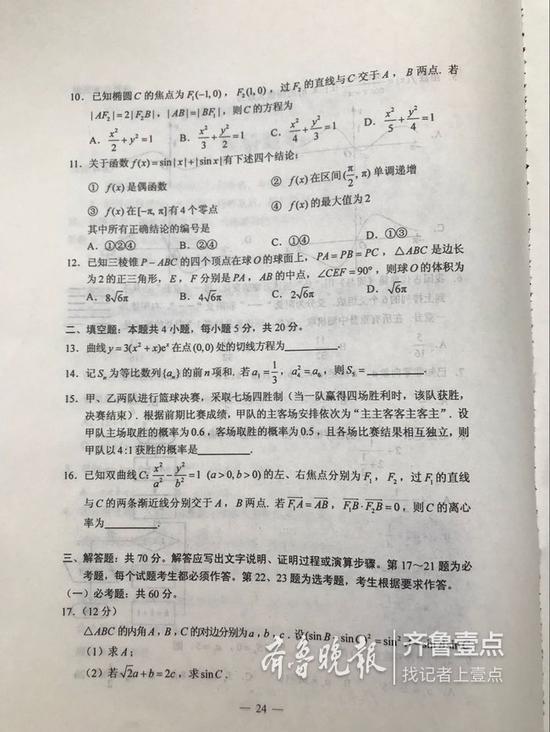 10. 已知椭圆C的焦点为F₁(-1,0),F₂(1,0),过F₂的直线与C交于A,B两点. 若
|AF₂|=2|F₂B|,|AB|=|BF₁|,则C的方程为
A. x²/2+y²=1 B. x²/3+y²/2=1 C. x²/4+y²/3=1 D. x²/5+y²/4=1
11. 关于函数f(x)=sin|x|+|sin x|有下述四个结论:
① f(x)是偶函数 ② f(x)在区间(π/2,π)单调递增
③ f(x)在[-π,π]有4个零点 ④ f(x)的最大值为2
其中所有正确结论的编号是
A. ①②④ B. ②④ C. ①④ D. ①③
12. 已知三棱锥P-ABC的四个顶点在球O的球面上,PA=PB=PC,△ABC是边长
为2的正三角形,E,F分别是PA,AB的中点,∠CEF=90°,则球O的体积为
A. 8√6π B. 4√6π C. 2√6π D. √6π
二、填空题:本题共4小题,每小题5分,共20分。
13. 曲线y=3(x²+x)eˣ在点(0,0)处的切线方程为________.
14. 记Sₙ为等比数列{aₙ}的前n项和. 若a₁=1/3,a₄²=a₆,则S₅=________.
15. 甲、乙两队进行篮球决赛,采取七场四胜制(当一队赢得四场胜利时,该队获胜,
决赛结束).根据前期比赛成绩,甲队的主客场安排依次为“主主客客主客主”.设
甲队主场取胜的概率为0.6,客场取胜的概率为0.5,且各场比赛结果相互独立,则
甲队以4:1获胜的概率是________.
16. 已知双曲线C:x²/a²-y²/b²=1 (a>0,b>0)的左、右焦点分别为F₁,F₂,过F₁的直线
与C的两条渐近线分别交于A,B两点. 若F₁A=AB,F₁B·F₂B=0,则C的离心
率为________.
三、解答题:共70分。解答应写出文字说明、证明过程或演算步骤。第17~21题为必
考题,每个试题考生都必须作答。第22、23题为选考题,考生根据要求作答。
(一)必考题:共60分。
17.(12分)
△ABC的内角A,B,C的对边分别为a,b,c. 设(sin B-sin )²=sin²
(1)求A;
(2)若√2a+b=2c,求sin C.
齐鲁晚报 齐鲁壹点
找记者上壹点
— 24 —